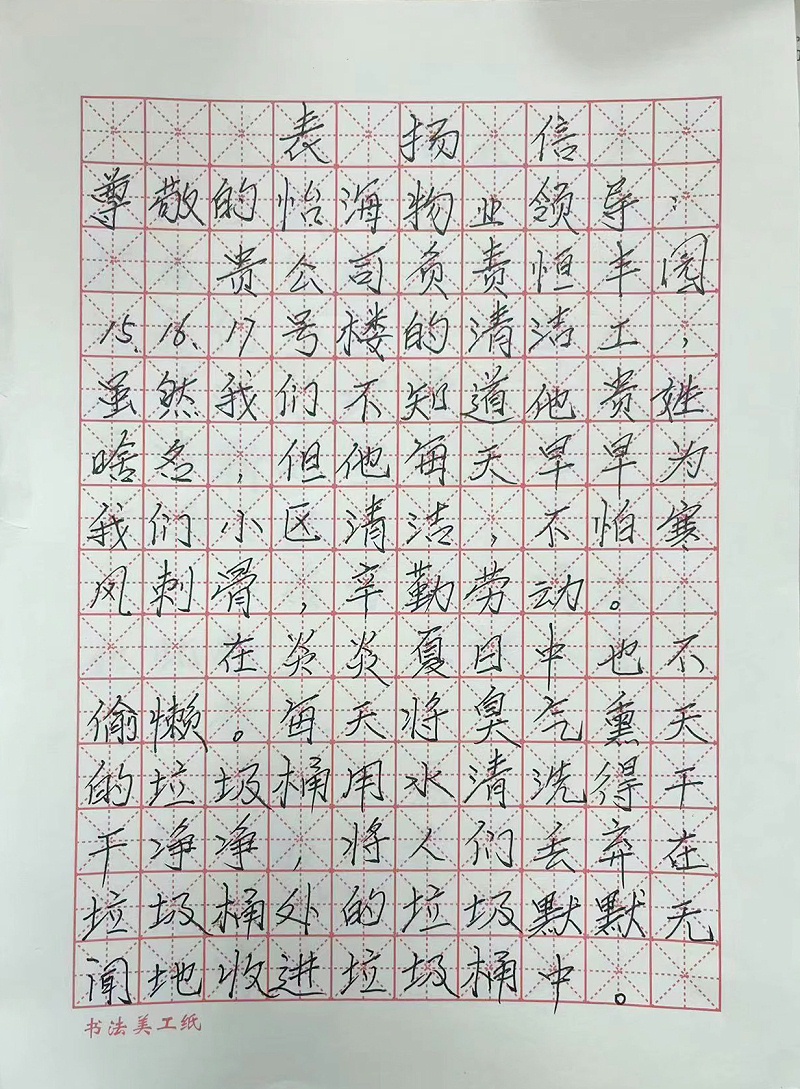 表扬信
尊敬的怡海物业领导：
贵公司负责恒丰园
15、16、17号楼的清洁工，
虽然我们不知道他贵姓
啥名，但他每天早早为
我们小区清洁，不怕寒
风刺骨，辛勤劳动。
在炎炎夏日中也不
偷懒。每天将臭气熏天
的垃圾桶用水清洗得干
干净净，将人们丢弃在
垃圾桶处的垃圾默默无
闻地收进垃圾桶中。
书法美工纸